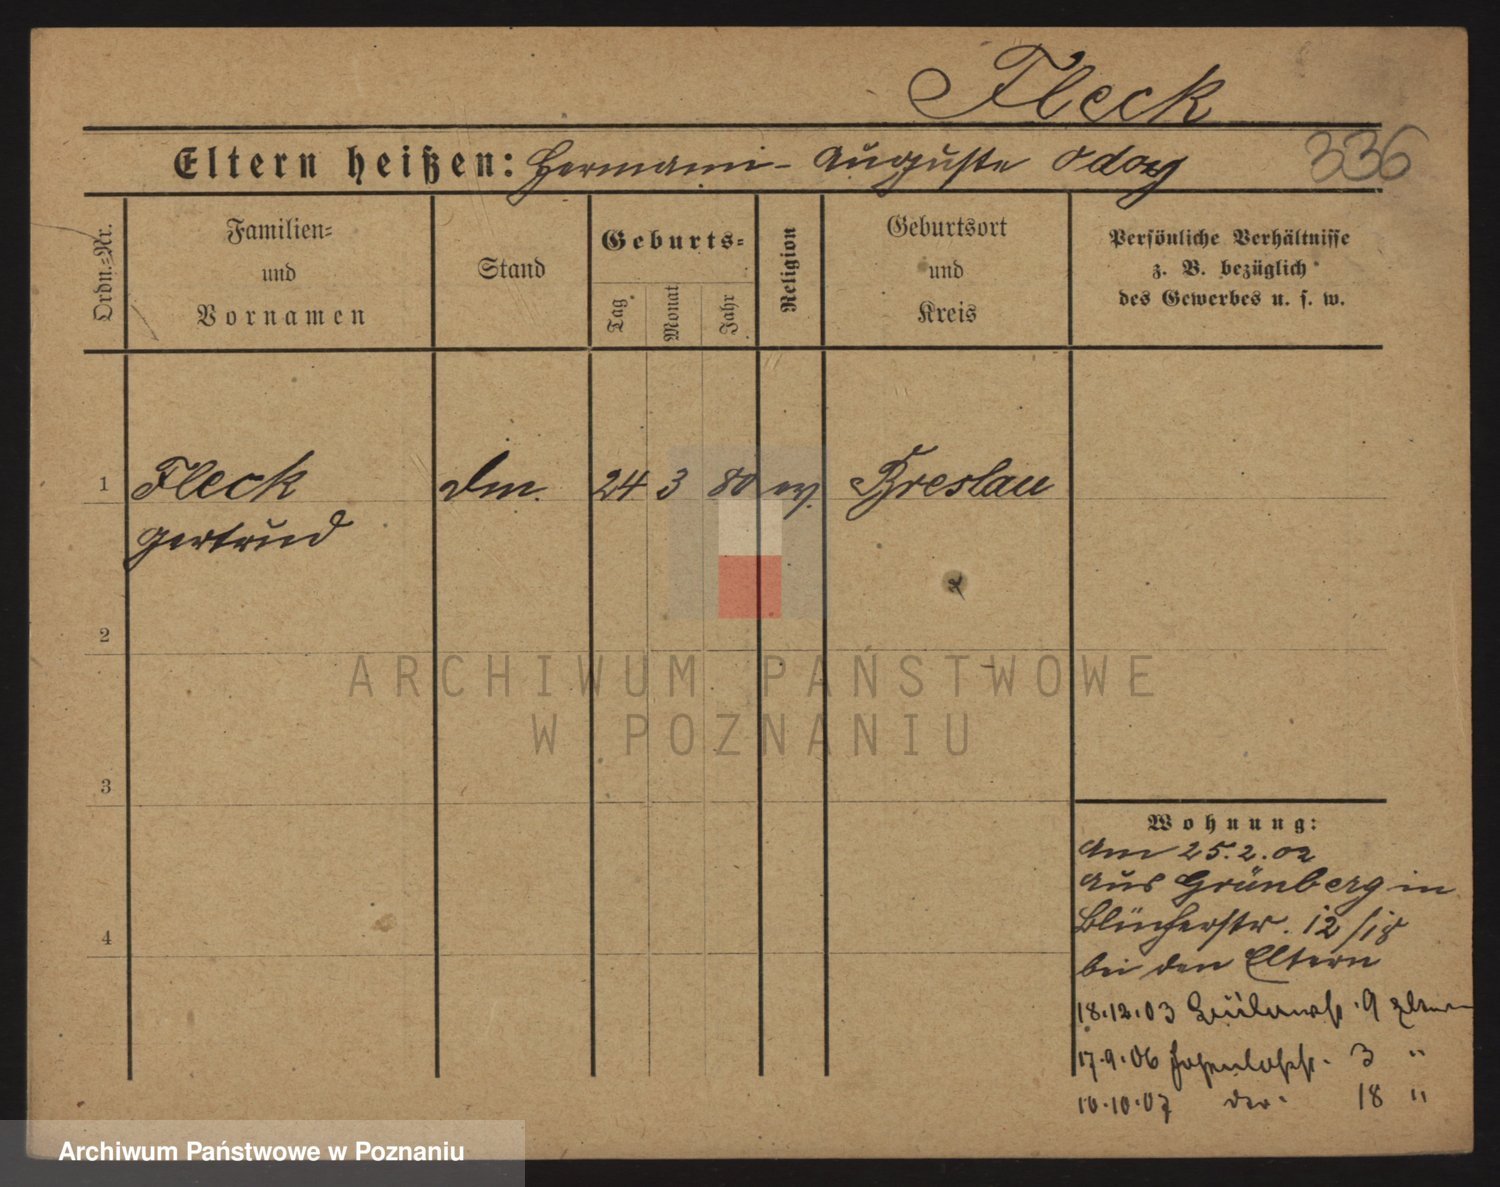 Fleck
336
Eltern heißen: Hermann - Auguste
Ordn.=Nr.
Familien=
und
Vornamen
Stand
Geburts=
Tag
Monat
Jahr
Religion
Geburtsort
und
Kreis
Persönliche Verhältnisse
z. B. bezüglich
des Gewerbes u. s. w.
1 Fleck 24 3 80 ev. Breslau
Gertrud
2
3
4
Wohnung:
Am 25.2.02
aus Grünberg in
Blücherstr. 12/18
bei den Eltern
18.12.03 9 Eltern
17.9.06 3 "
10.10.07 18 "
ARCHIWUM PAŃSTWOWE
W POZNANIU
Archiwum Państwowe w Poznaniu